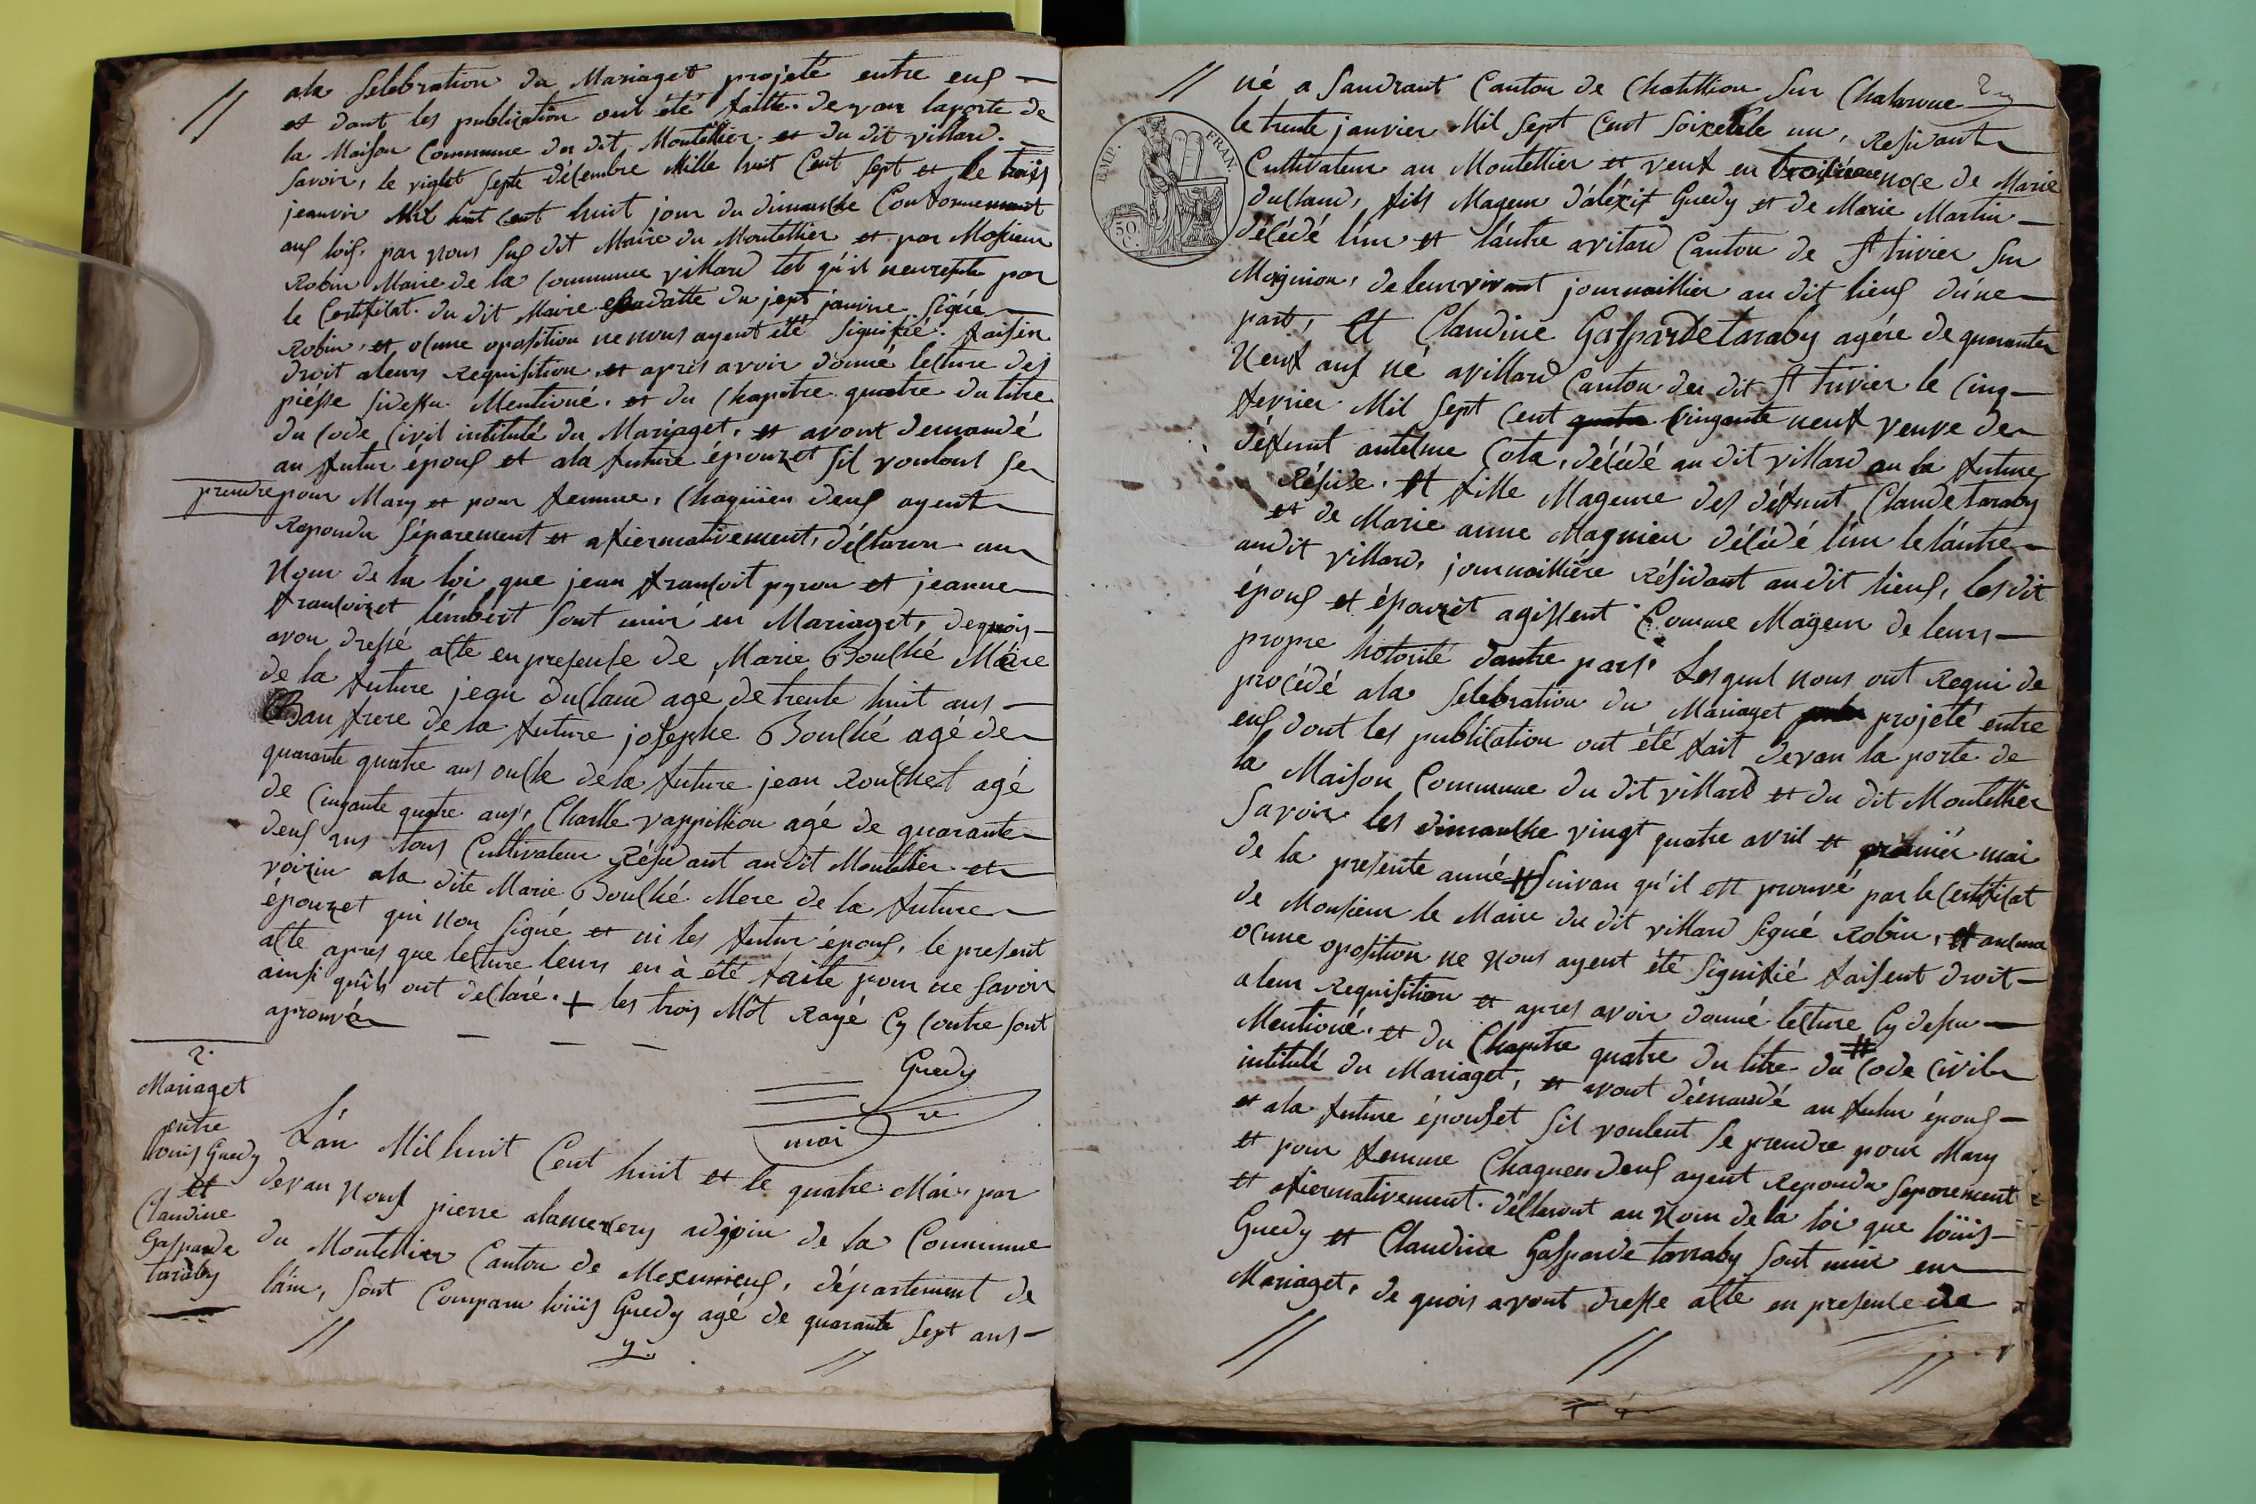 ala selebration du Mariaget projeté entre eus
et dont les publication ont été faitte devan laporte de
la Maison Commune du dit Montellier et du dit villard
savoir, le vight septe décembre Mille huit Cent sept et le trois
jeanvir Mil huit cent huit jour du dimanche Conformement
aus lois, par nous sus dit Maire du Montellier et par Mosieur
Robin Maire de la Commune villard tel qu'il
le Certificat du dit Maire du sept janvier signé
Robin, et ocune oposition ne nous ayent été signifié faisen
droit aleurs Requisition et apres avoir donné lecture des
piésse sidessu Mentioné et du Chapitre quatre du titre
du Code Civil intitulé du Mariaget, et avont demandé
au futur épous et ala future épouzet sil voulont se
prendre pour Mary et pour femme, Chaquien deus ayent
Repondu séparement et afiermativement, déclaron au
Nom de la loi que jean fransoit pyron et jeanne
fransoizet lémbert sont unir en Mariaget, dequois
avon dressé acte en presense de Marie Bouché Maire
de la future jean duclaud agé de trente huit ans
Bau frere de la future josephe Bouché agé de
quarante quatre ans oncle de la future jean Rouchet agé
de Cinqante quatre ans, Charlle vappillion agé de quarante
deus ans tous Cultivateur Résidant audit Montellier et
voizin ala dite Marie Bouché Mere de la future
épouzet qui non signé et ni les futur épous, le present
acte apres que lecture leurs en à été faite pour ne savoir
ainsi qu'ils ont declaré. + les trois Mot Rayé Cy contre sont
aprouvé
Guedy
moi
2.
Mariaget
entre
louis Guedy
et
Claudine
Gasparde
taraby
L'an Mil huit Cent huit et le quatre Mai, par
devan Nous pierre alamercery adjoin de la Commune
du Montellier Canton de Meximieus, département de
l'ain, sont Comparu loüis Guedy agé de quarante sept ans
né a Sandrant Canton de Chatillion sur Chalarone
le trente janvier Mil sept Cent soixente un, Residant
Cultivateur au Montellier et veuf en troisiéme noce de Marie
duclaud, fils Mageur d'aléxit Guedy et de Marie Martin
décédé lun et láutre avilard Canton de St trivier sur
Mognion, de leur vivant journaillier au dit lieus d'une
part, Et Claudine Gasparde taraby agére de quarante
Neuf ans né avillard Canton du dit St trivier le Cinq
fevrier Mil sept Cent Cinqante neuf veuve de
défunt antelme Cota, décédé au dit villard ou la future
Réside, et fille Mageure des défunt Claude taraby
et de Marie anne Magnien décédé lun le láutre
audit villard, journaillière résidant audit lieus, les dit
épous et épouzet agissent Comme Mageur de leurs
propre hotorité dautre part, Lesquel nous ont Requi de
procédé ala selebration du Mariaget projeté entre
eus dont les publication ont été fait devan la porte de
la Maison Commune du dit villard et du dit Montellier
savoir les dimanche vingt quatre avril et prémier mai
de la presente année suivan qu'il est prouvé par le Certificat
de Monsieur le Maire du dit villard signé Robin, et
ocune oposition ne nous ayent été signifié faisent droit
a leur Requisition et apres avoir donné lecture Cy dessu
Mentioné. et du Chapitre quatre du titre du Code Civil
intitulé du Mariaget, et avont démandé au futur épous
et ala future épouset sil voulent se prendre pour Mary
et pour femme Chaquen deus ayent Repondu separement
et afiermativement. déclaront au Nom de la loi que loüis
Guedy et Claudine Gasparde tarraby sont unir en
Mariaget, de quois avont dresse acte en presense de
EMP. FRAN.
50.
C.